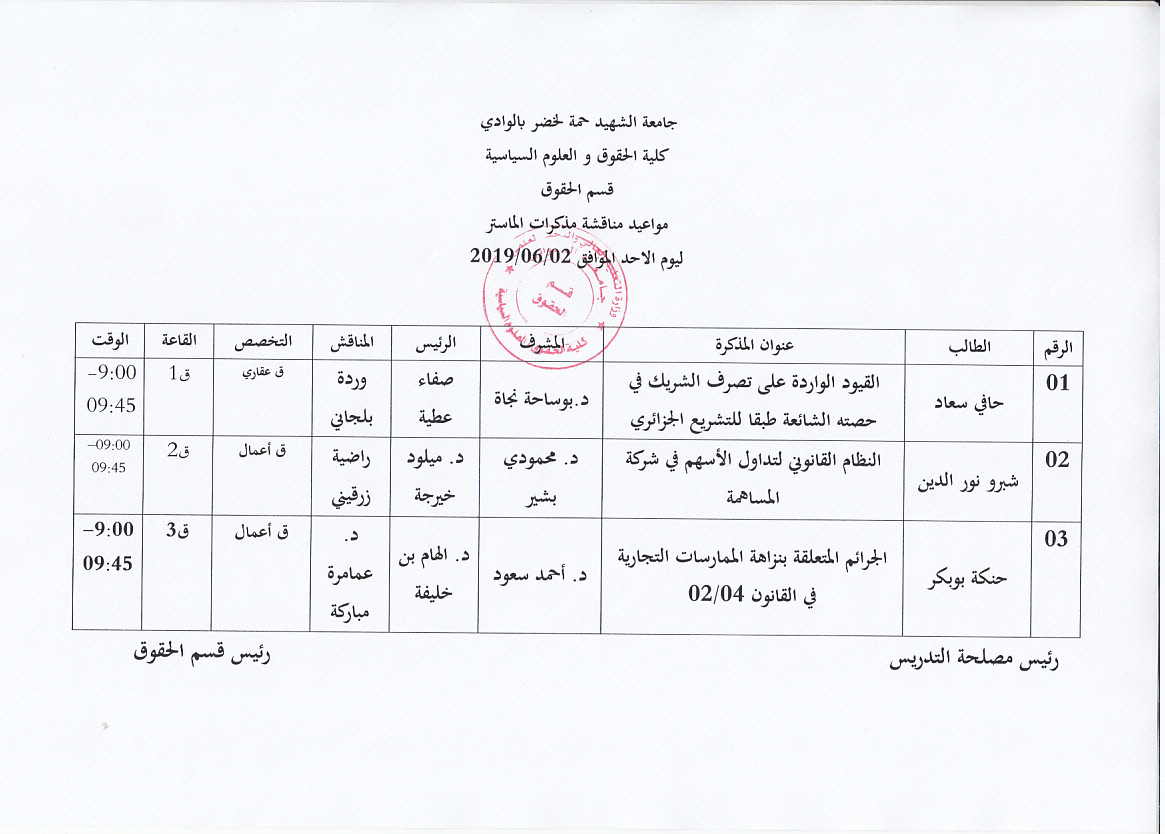 جامعة الشهيد حمة لخضر بالوادي
كلية الحقوق و العلوم السياسية
قسم الحقوق
مواعيد مناقشة مذكرات الماستر
ليوم الاحد الموافق 2019/06/02
قسم
الحقوق
الرقم الطالب عنوان المذكرة المشرف الرئيس المناقش التخصص القاعة الوقت
01 حافي سعاد القيود الواردة على تصرف الشريك في د.بوساحة نجاة صفاء وردة ق عقاري ق1 9:00–
حصته الشائعة طبقا للتشريع الجزائري عطية بلجاني 09:45
02 شبرو نور الدين النظام القانوني لتداول الأسهم في شركة د. محمودي د. ميلود راضية ق أعمال ق2 09:00–
المساهمة بشير خيرجة زرقيني 09:45
03 حنكة بوبكر الجرائم المتعلقة بنزاهة الممارسات التجارية د. أحمد سعود د. الهام بن د. ق أعمال ق3 9:00–
في القانون 02/04 خليفة عمامرة 09:45
مباركة
رئيس مصلحة التدريس رئيس قسم الحقوق